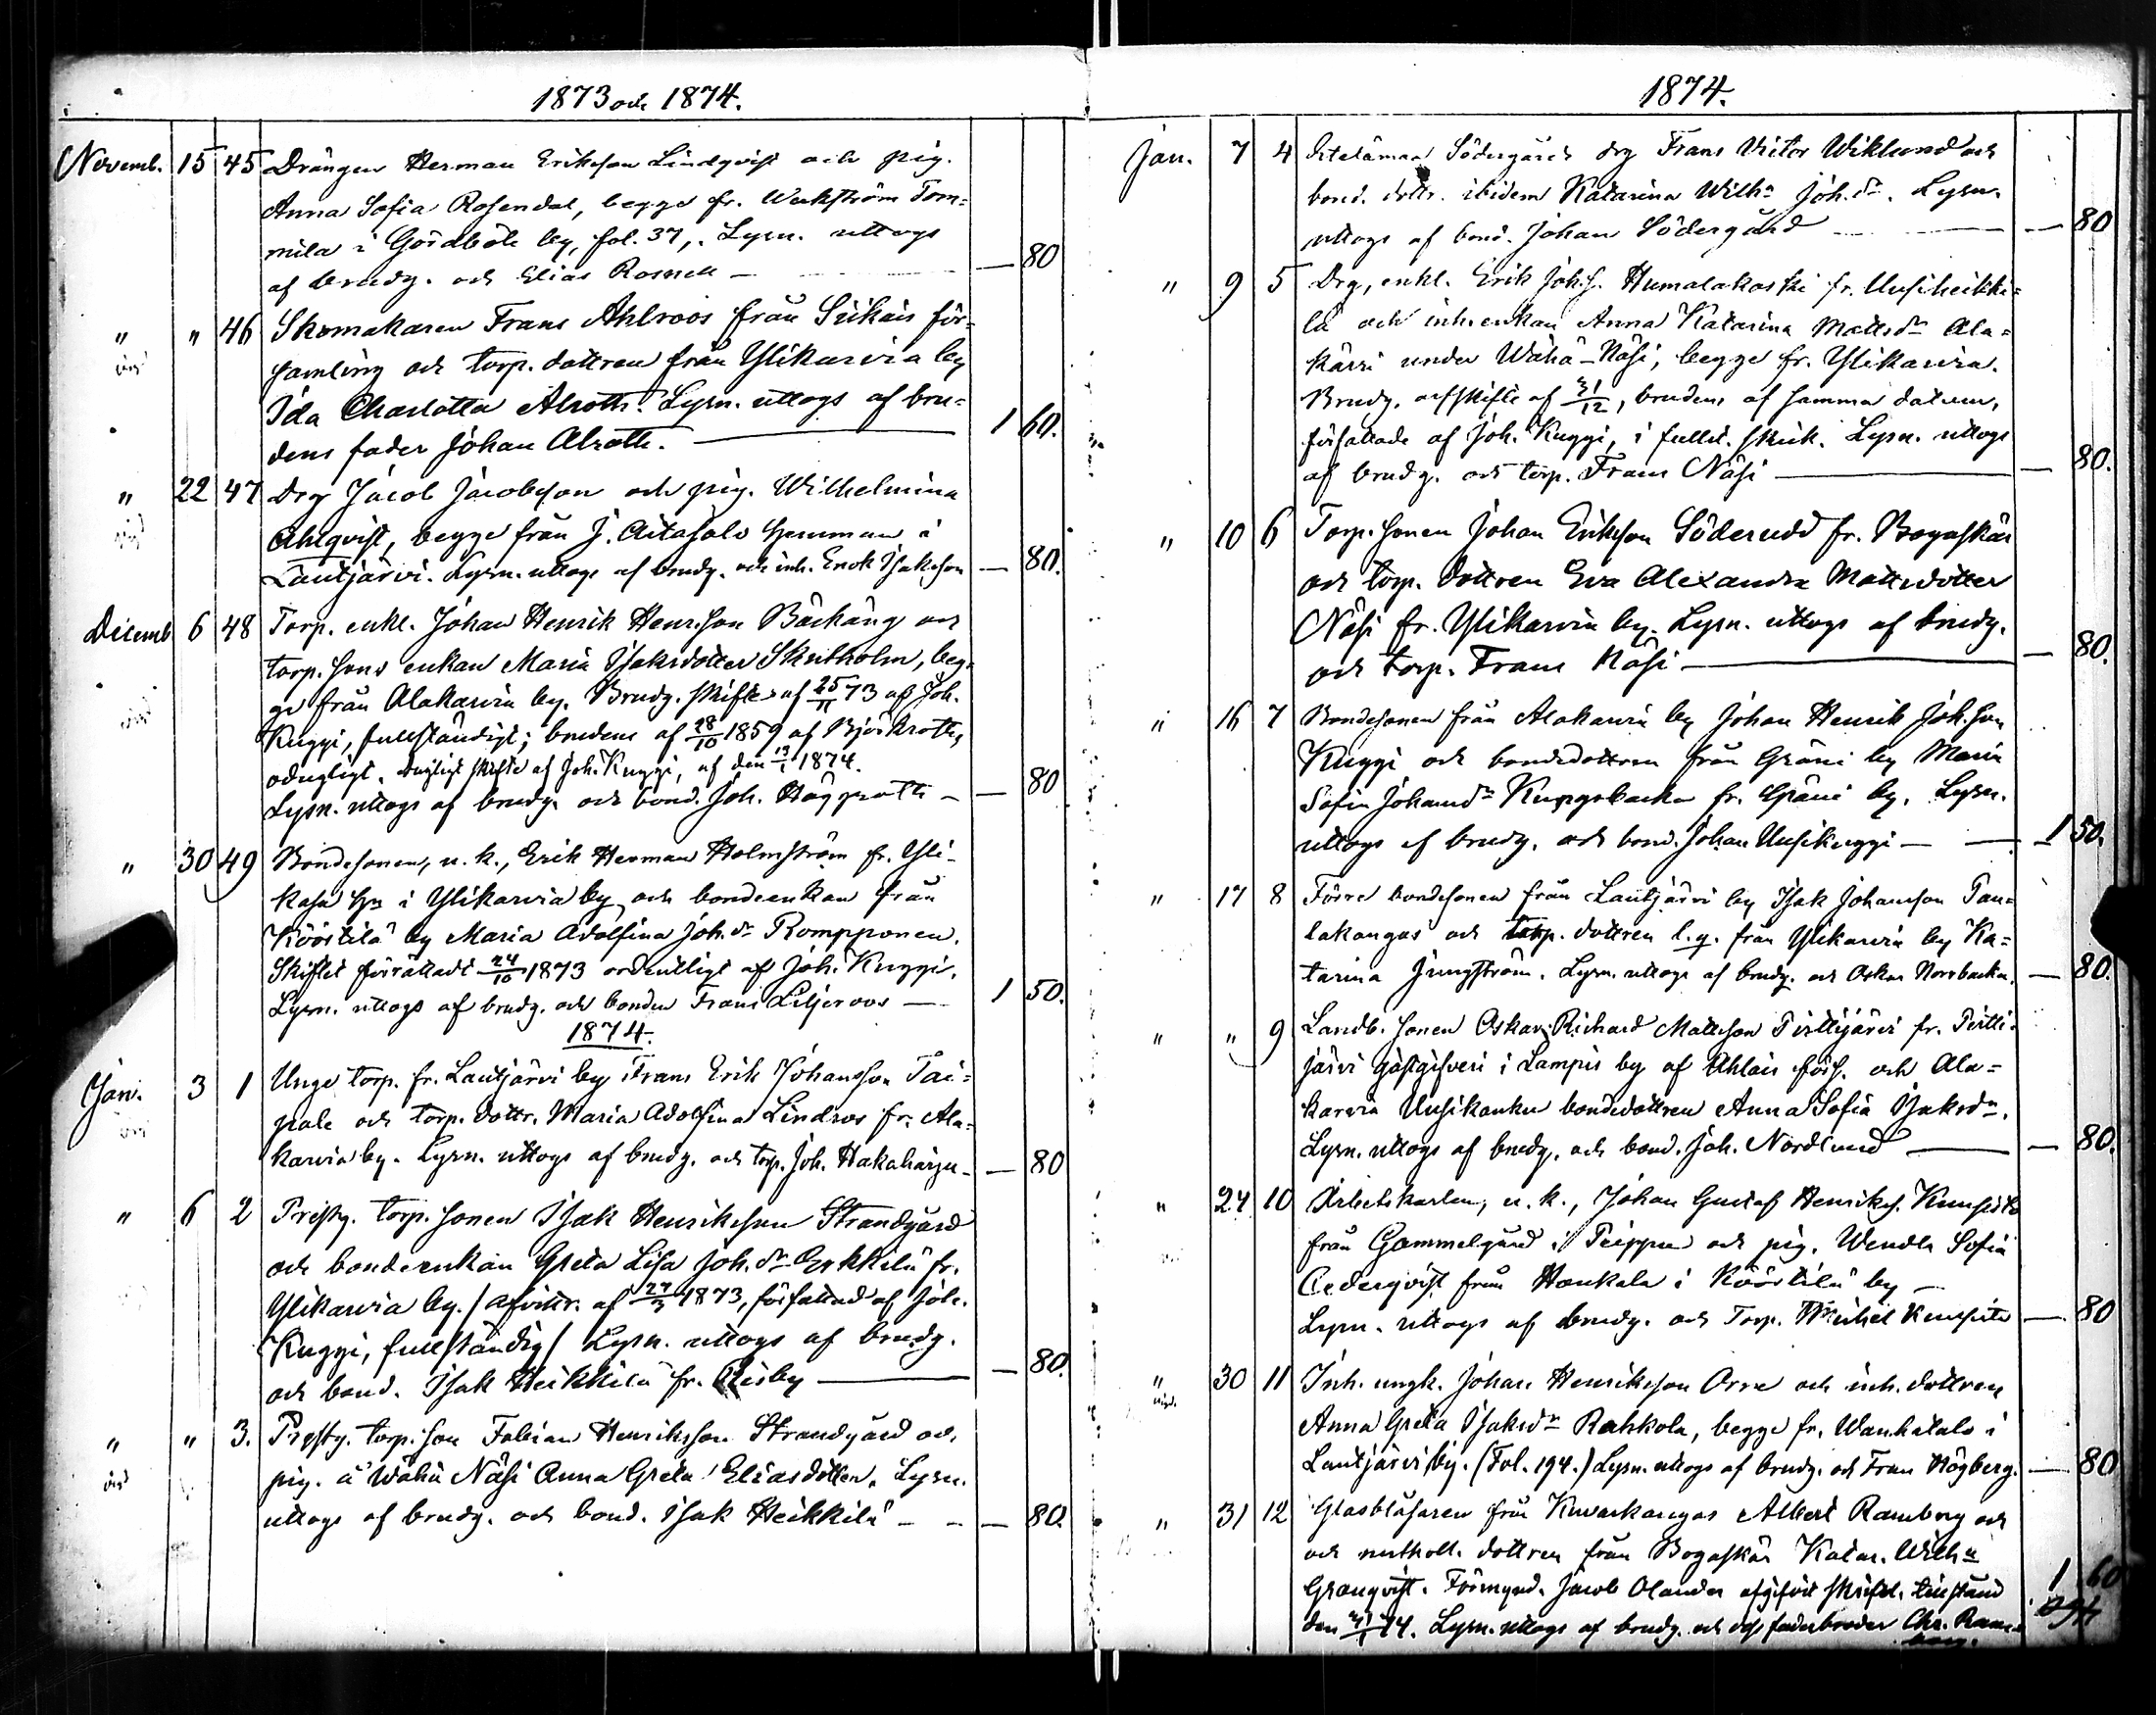 1873 och 1874.
Novemb. 15 45 Drängen Herman Erikson Lindqvist och pig.
Anna Sofia Rosendal, begge fr. Werkström Tom=
mila i Gördböle by, fol. 37,. Lysn. uttogs
af brudg. och Elias Rosnell — — 80
" " 46 Skomakaren Frans Ahlroos från Siikais för=
samling och torp. dottren från Ylikarvia by
Ida Charlotta Alroth. Lysn. uttogs af bru=
dens fader Johan Alroth. — 1 60.
" 22 47 Drg Jacob Jacobson och pig. Wilhelmina
Ahlqvist, begge från J. Aitasalo hemman i
Lautjärvi. Lysn. uttogs af brudg. och inh. Enok Isakson — 80.
Decemb 6 48 Torp. enkl. Johan Henrik Henr.son Bäckäng och
torp. sons enkan Maria Isaksdotter Skritholm, beg=
ge från Alakarvia by. Brudg. skifte af 25/11 73 af Joh.
Kuggi, fullständigt; brudens af 28/10 1859 af Björkroth,
odugligt. dugligt skifte af Joh. Kuggi, af den 13/1 1874.
Lysn. uttogs af brudg. och bond. Joh. Häggroth — — 80
" 30 49 Bondesonen, u. k., Erik Herman Holmström fr. Yli-
kasa hn i Ylikarvia by och bondeenkan från
Köörtilä by Maria Adolfina Joh.dr Rompponen.
Skiftet förrättadt 24/10 1873 ordentligt af Joh. Kuggi.
Lysn. uttogs af brudg. och bonden Frans Liljeroos — 1 50.
1874.
Jan. 3 1 Unge torp. fr. Lautjärvi by Frans Erik Johansson Tai=
pale och torp. dottr. Maria Adolfina Lindroos fr. Ala=
karvia by. Lysn. uttogs af brudg. och torp. Joh. Hakaharju — 80
" 6 2 Prestg. torp. sonen Isak Henrikson Strandgård
och bondeenkan Greta Lisa Joh.dr Erkkilä fr.
Ylikarvia by. / afvittr. af 27/3 1873, författad af Joh.
Kuggi, fullständig / Lysn. uttogs af brudg.
och bond. Isak Heikkilä fr. Risby — — 80.
" " 3. Prestg. torp. son Fabian Henriksson Strandgård och
pig. å Wähä Näsi Anna Greta Eliasdotter. Lysn.
uttogs af brudg. och bond. Isak Heikkilä — — 80.
1874.
Jan. 7 4 Södergårds drg Frans Victor Wiklund och
bond. dottr. ibidem Katarina Wilh:a Joh.dr. Lysn.
uttogs af bond. Johan Södergård — — 80
" 9 5 Drg, enkl. Erik Joh.s. Humalakoski fr. Uusiheikki=
lä och inh. enkan Anna Katarina Mattsdr Ala=
kärri under Wähä-Näsi, begge fr. Ylikarvia.
Brudg. arfskifte af 31/12, brudens af samma datum,
författade af Joh. Kuggi, i fullst. skick. Lysn. uttogs
af brudg. och torp. Frans Näsi — — 80.
" 10 6 Torp. sonen Johan Erikson Söderudd fr. Bogaskär
och torp. dottren Eva Alexandra Mattsdotter
Näsi fr. Ylikarvia by. Lysn. uttogs af brudg.
och torp. Frans Näsi — — 80.
" 16 7 Bondesonen från Alakarvia by Johan Henrik Joh.son
Kuggi och bondedottren från Gräni by Maria
Sofia Johansdr Kungsbacka fr. Gräni by. Lysn.
uttogs af brudg. och bond. Johan Uusikuggi — — 1 50.
" 17 8 Förre bondesonen från Lautjärvi by Isak Johanson Pau=
lakangas och torp. dottren l. g. från Ylikarvia by Ka=
tarina Jungström. Lysn. uttogs af brudg. och Oskar Norrbacka. — 80.
" " 9 Landb. sonen Oskar Richard Mattson Pirttijärvi fr. Pirtti-
järvi gästgifveri i Lampis by af Ahlais förs. och Ala=
karvia Uusikanku bondedottren Anna Sofia Isaksdr.
Lysn. uttogs af brudg. och bond. Joh. Nordlund — — 80.
" 24 10 Arbetskarlen, u. k., Johan Gustaf Henriks. Kuusisto
från Gammelgård i Peippu och pig. Wendla Sofia
Cederqvist från Haukala i Köörtilä by —
Lysn. uttogs af brudg. och Torp. Mickel Kuusisto — 80
" 30 11 Inh. ungk. Johan Henrikson Orre och inh. dottren
Anna Greta Isaksdr Rahkola, begge fr. Wanhatalo i
Lautjärvi by. (Fol. 194.) Lysn. uttogs af brudg. och Frans Högberg. — 80
" 31 12 Glasblåsaren från Kuuskangas Albert Ramberg och
och dottren från Bogaskär Katar. Wilh:a
Granqvist. Förmynd. Jacob Olander afgifvit skriftl. tillstånd
den 31/1 74. Lysn. uttogs af brudg. och dess faderbroder Chr. Ram= 1 60
berg.